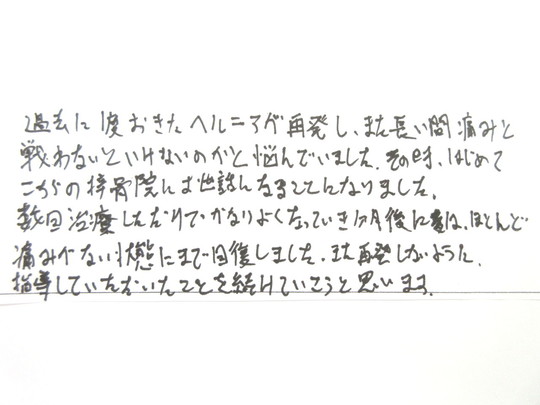 過去に1度おきたヘルニアが再発し、また長い間痛みと
戦わないといけないのかと悩んでいました。その時、はじめて
こちらの接骨院にお世話になることになりました。
数回治療しただけでかなりよくなっていき1ヶ月後には、ほとんど
痛みがない状態にまで回復しました。また再発しないように、
指導していただいたことを続けていこうと思います。